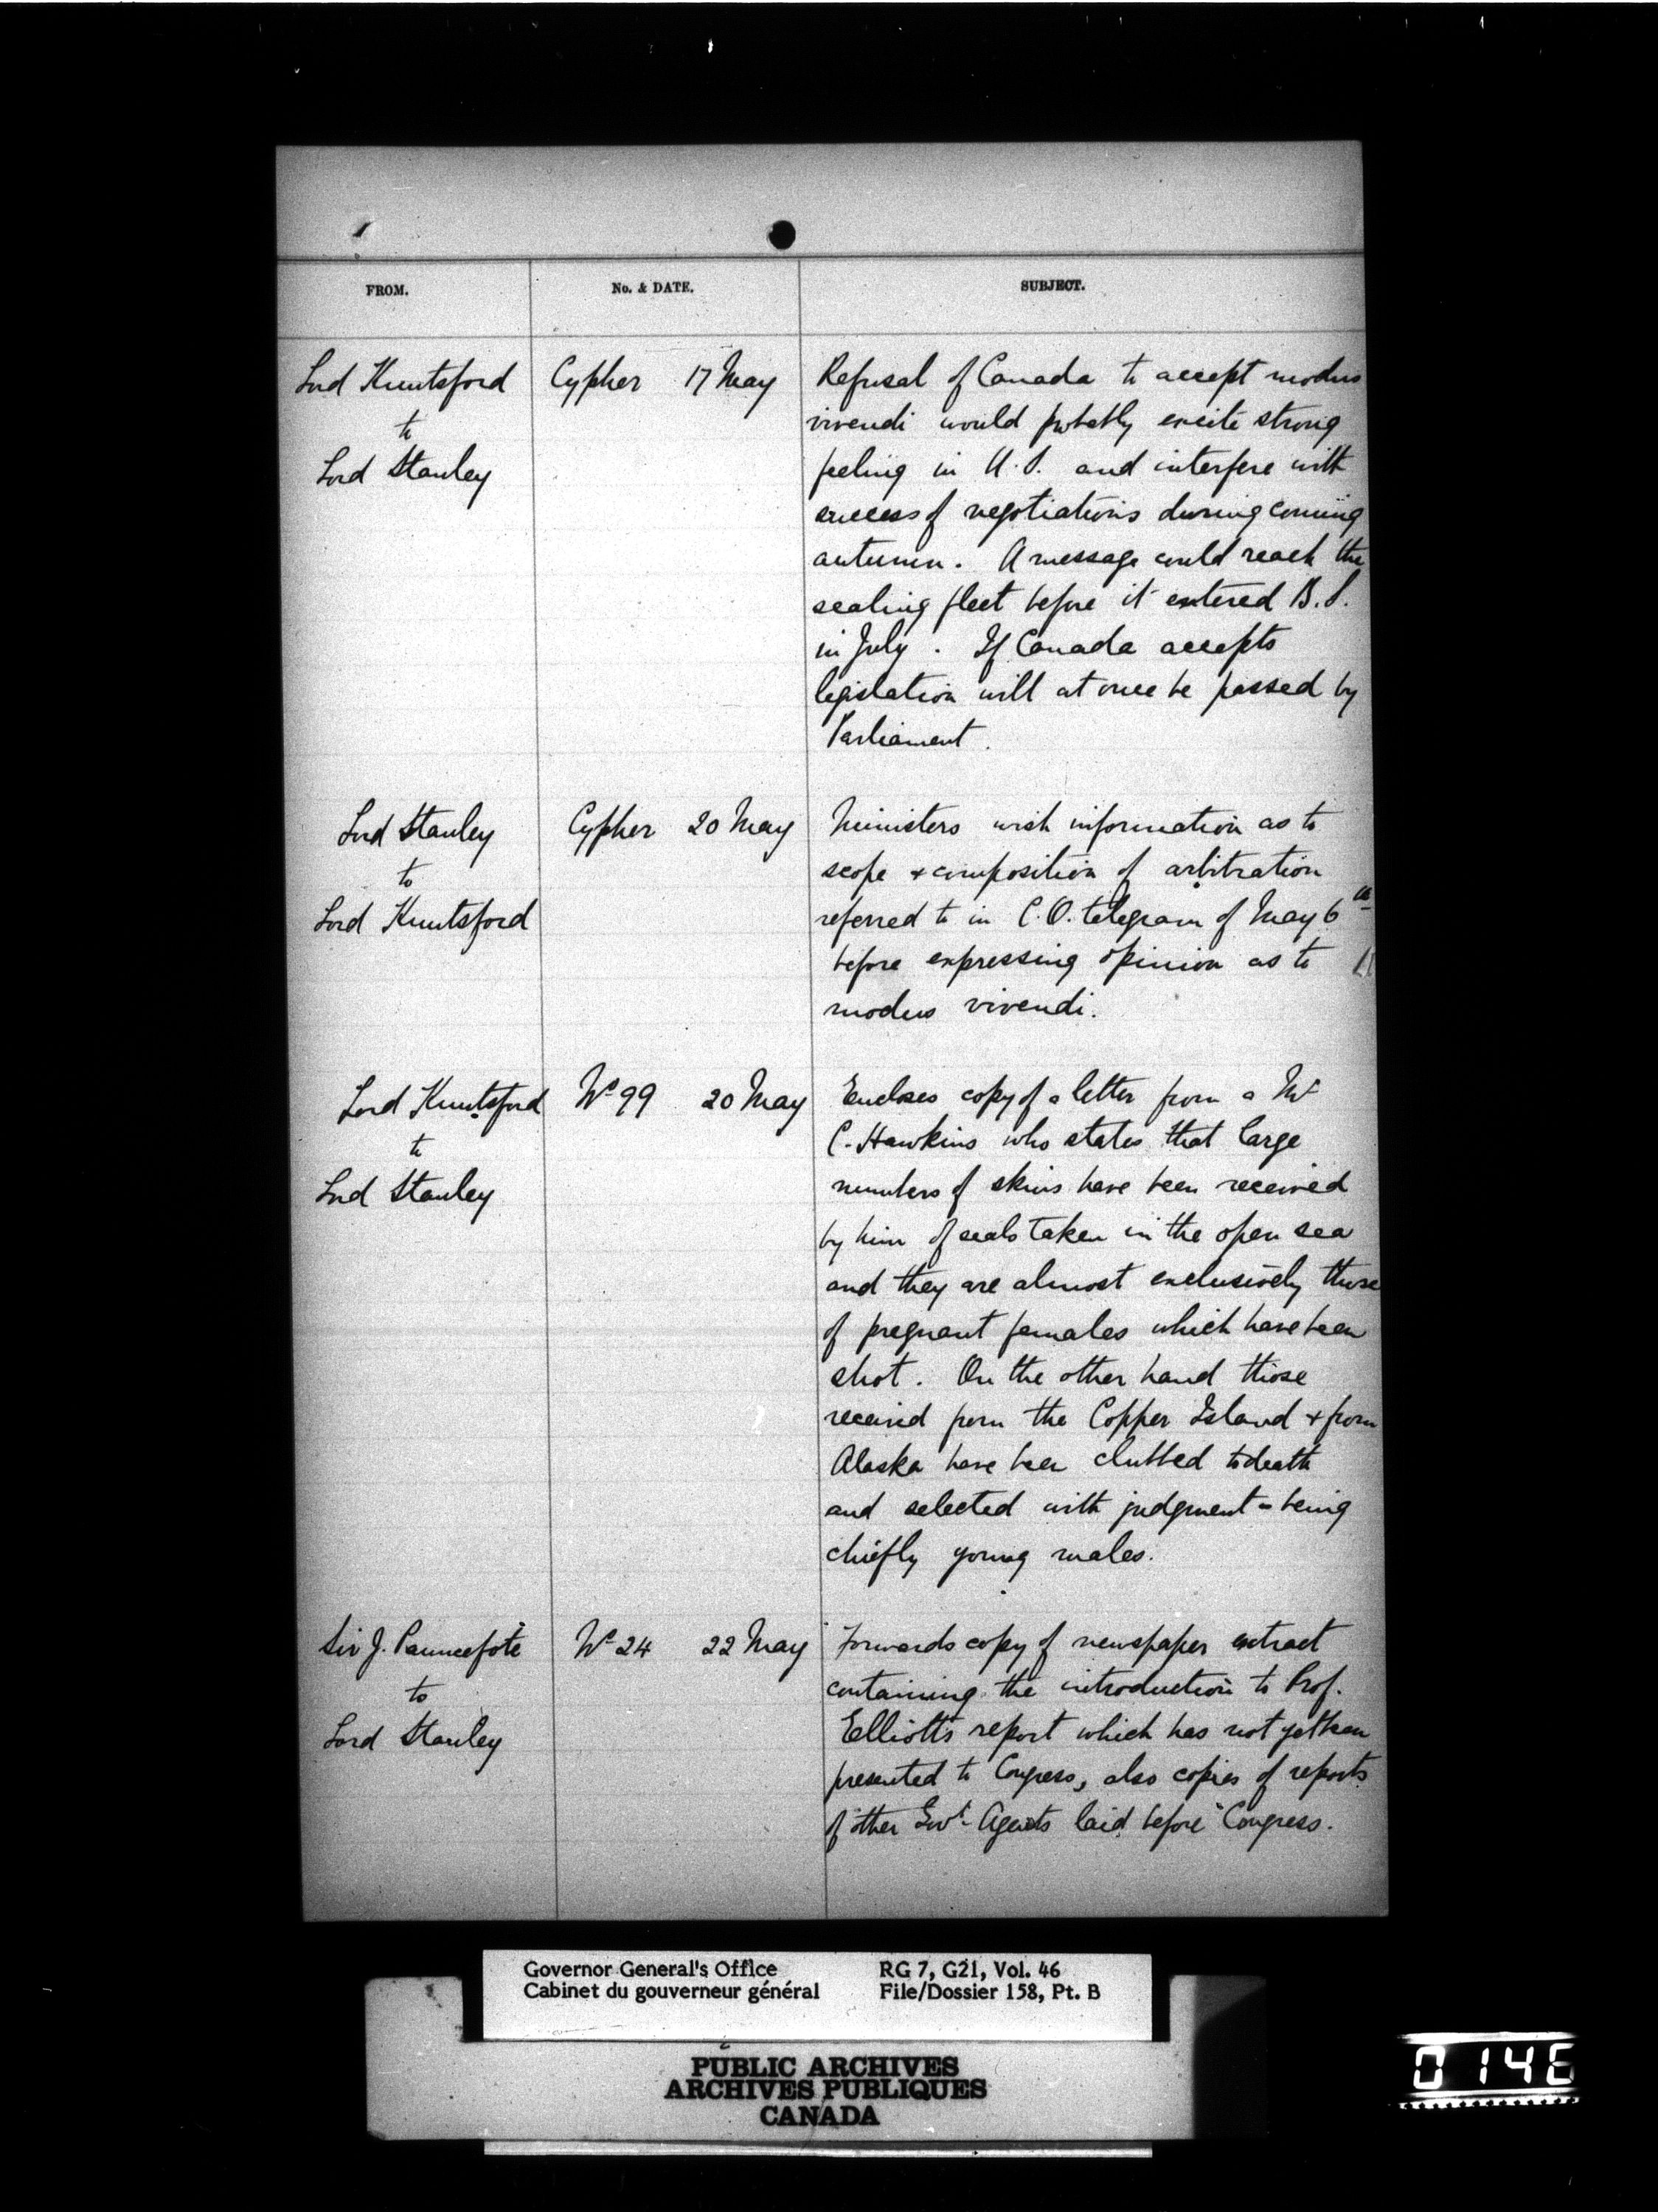 FROM. No. & DATE. SUBJECT.
Lord Knutsford Cypher 17 May Refusal of Canada to accept modus
to vivendi would probably excite strong
Lord Stanley feeling in U.S. and interfere with
success of negotiations during coming
autumn. A message could reach the
sealing fleet before it entered B.S.
in July. If Canada accepts
legislation will at once be passed by
Parliament.
Lord Stanley Cypher 20 May Ministers wish information as to
to scope & composition of arbitration
Lord Knutsford referred to in C.O. telegram of May 6th
before expressing opinion as to
modus vivendi.
Lord Knutsford No 99 20 May Encloses copy of a letter from a Mr
to C. Hawkins who states that large
Lord Stanley numbers of skins have been received
by him of seals taken in the open sea
and they are almost exclusively those
of pregnant females which have been
shot. On the other hand those
received from the Copper Island & from
Alaska have been clubbed to death
and selected with judgment - being
chiefly young males.
Sir J. Pauncefote No 24 22 May Forwards copy of newspaper extract
to containing the introduction to Prof.
Lord Stanley Elliott's report which has not yet been
presented to Congress, also copies of reports
of other Govt Agents laid before Congress.
Governor General's Office RG 7, G21, Vol. 46
Cabinet du gouverneur général File/Dossier 158, Pt. B
PUBLIC ARCHIVES
ARCHIVES PUBLIQUES
CANADA